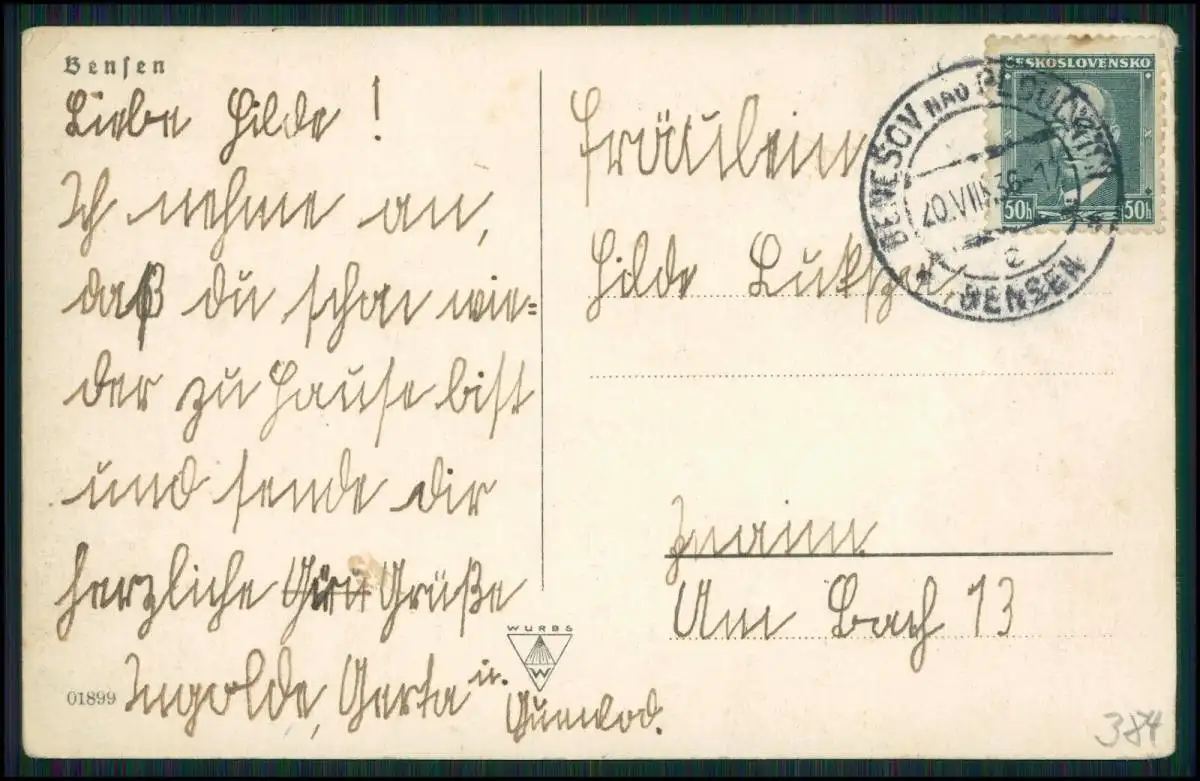 Bensen
Liebe Hilde!
Ich nehme an,
daß du schon wie=
der zu Hause bist
und sende dir
herzliche Grüße
Ingolde, Gerta u.
01899
WURBS
W
ČESKOSLOVENSKO
50h 50h
BENEŠOV NAD PLOUČNICÍ
20.VIII.36-17
c
BENSEN
Fräulein
Hilde
Znaim
Am Bach 13
384